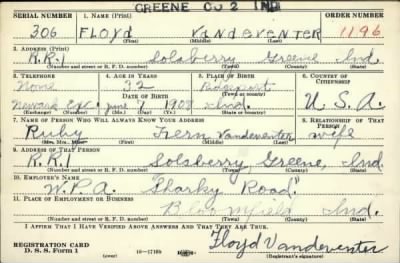 GREENE CO 2 IND
SERIAL NUMBER 1. NAME (Print) ORDER NUMBER
306 FLOYD VANDEVENTER 1196
(First) (Middle) (Last)
2. ADDRESS (Print)
R.R.1 Solsberry Greene Ind.
(Number and street or R. F. D. number) (Town) (County) (State)
3. TELEPHONE 4. AGE IN YEARS 5. PLACE OF BIRTH 6. COUNTRY OF CITIZENSHIP
None 32
DATE OF BIRTH (Town or county)
June 7 1908 Ind. U.S.A.
(Exchange) (Number) (Mo.) (Day) (Yr.) (State or country)
7. NAME OF PERSON WHO WILL ALWAYS KNOW YOUR ADDRESS 8. RELATIONSHIP OF THAT PERSON
Ruby Fern Vandeventer wife
(Mr., Mrs., Miss) (First) (Middle) (Last)
9. ADDRESS OF THAT PERSON
R.R.1 Solsberry Greene, Ind
(Number and street or R. F. D. number) (Town) (County) (State)
10. EMPLOYER'S NAME
W.P.A. "Sharky Road"
11. PLACE OF EMPLOYMENT OR BUSINESS
Bloomfield Ind.
(Number and street or R. F. D. number) (Town) (County) (State)
I AFFIRM THAT I HAVE VERIFIED ABOVE ANSWERS AND THAT THEY ARE TRUE.
Floyd Vandeventer
REGISTRATION CARD
D. S. S. Form 1 16—17105 (Registrant's signature)